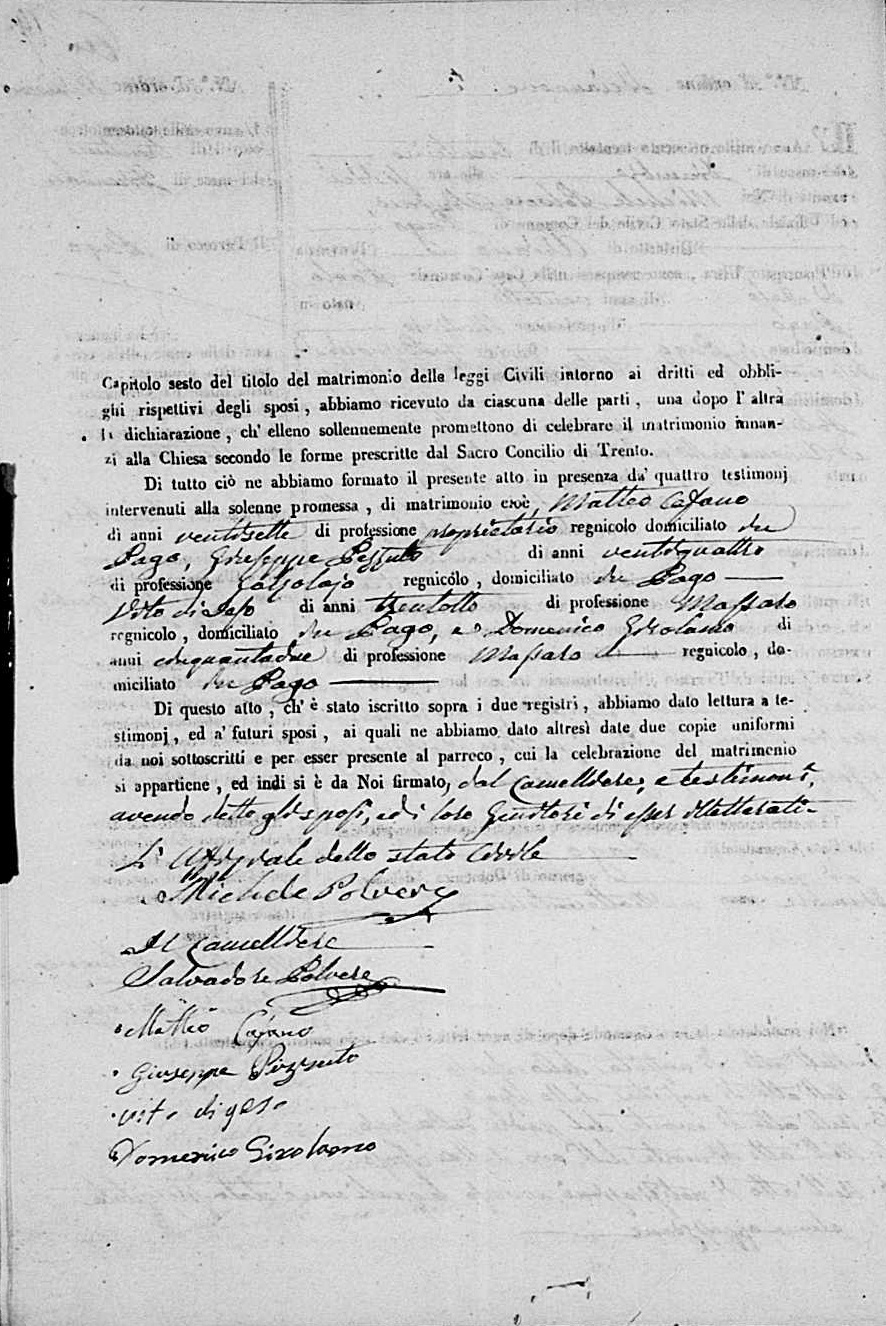 Capitolo sesto del titolo del matrimonio delle leggi Civili intorno ai dritti ed obbli-
ghi rispettivi degli sposi, abbiamo ricevuto da ciascuna delle parti, una dopo l'altra
la dichiarazione, ch'elleno sollennemente promettono di celebrare il matrimonio innan-
zi alla Chiesa secondo le forme prescritte dal Sacro Concilio di Trento.
Di tutto ciò ne abbiamo formato il presente atto in presenza da' quattro testimonj
intervenuti alla solenne promessa, di matrimonio cioè, Matteo Cafano
di anni ventisette di professione proprietario regnicolo domiciliato in
Pago, Giuseppe Pizzuto di anni ventiquattro
di professione regnicolo, domiciliato in Pago
Vito di Gaso di anni trentotto di professione Massaro
regnicolo, domiciliato in Pago, e Domenico Girolamo di
anni cinquantadue di professione Massaro regnicolo, do-
miciliato in Pago
Di questo atto, ch'è stato iscritto sopra i due registri, abbiamo dato lettura a te-
stimonj, ed a' futuri sposi, ai quali ne abbiamo dato altresì date due copie uniformi
da noi sottoscritti e per esser presente al parroco, cui la celebrazione del matrimonio
si appartiene, ed indi si è da Noi firmato, dal Cancelliere, e testimoni,
avendo detto gli sposi, ed i loro Genitori di esser illetterati
L'Uffiziale dello stato Civile
Michele Polvere
Il Cancelliere
Salvadore Polvere
Matteo Cafano
Giuseppe Pizzuto
vito di gaso
Domenico Girolamo